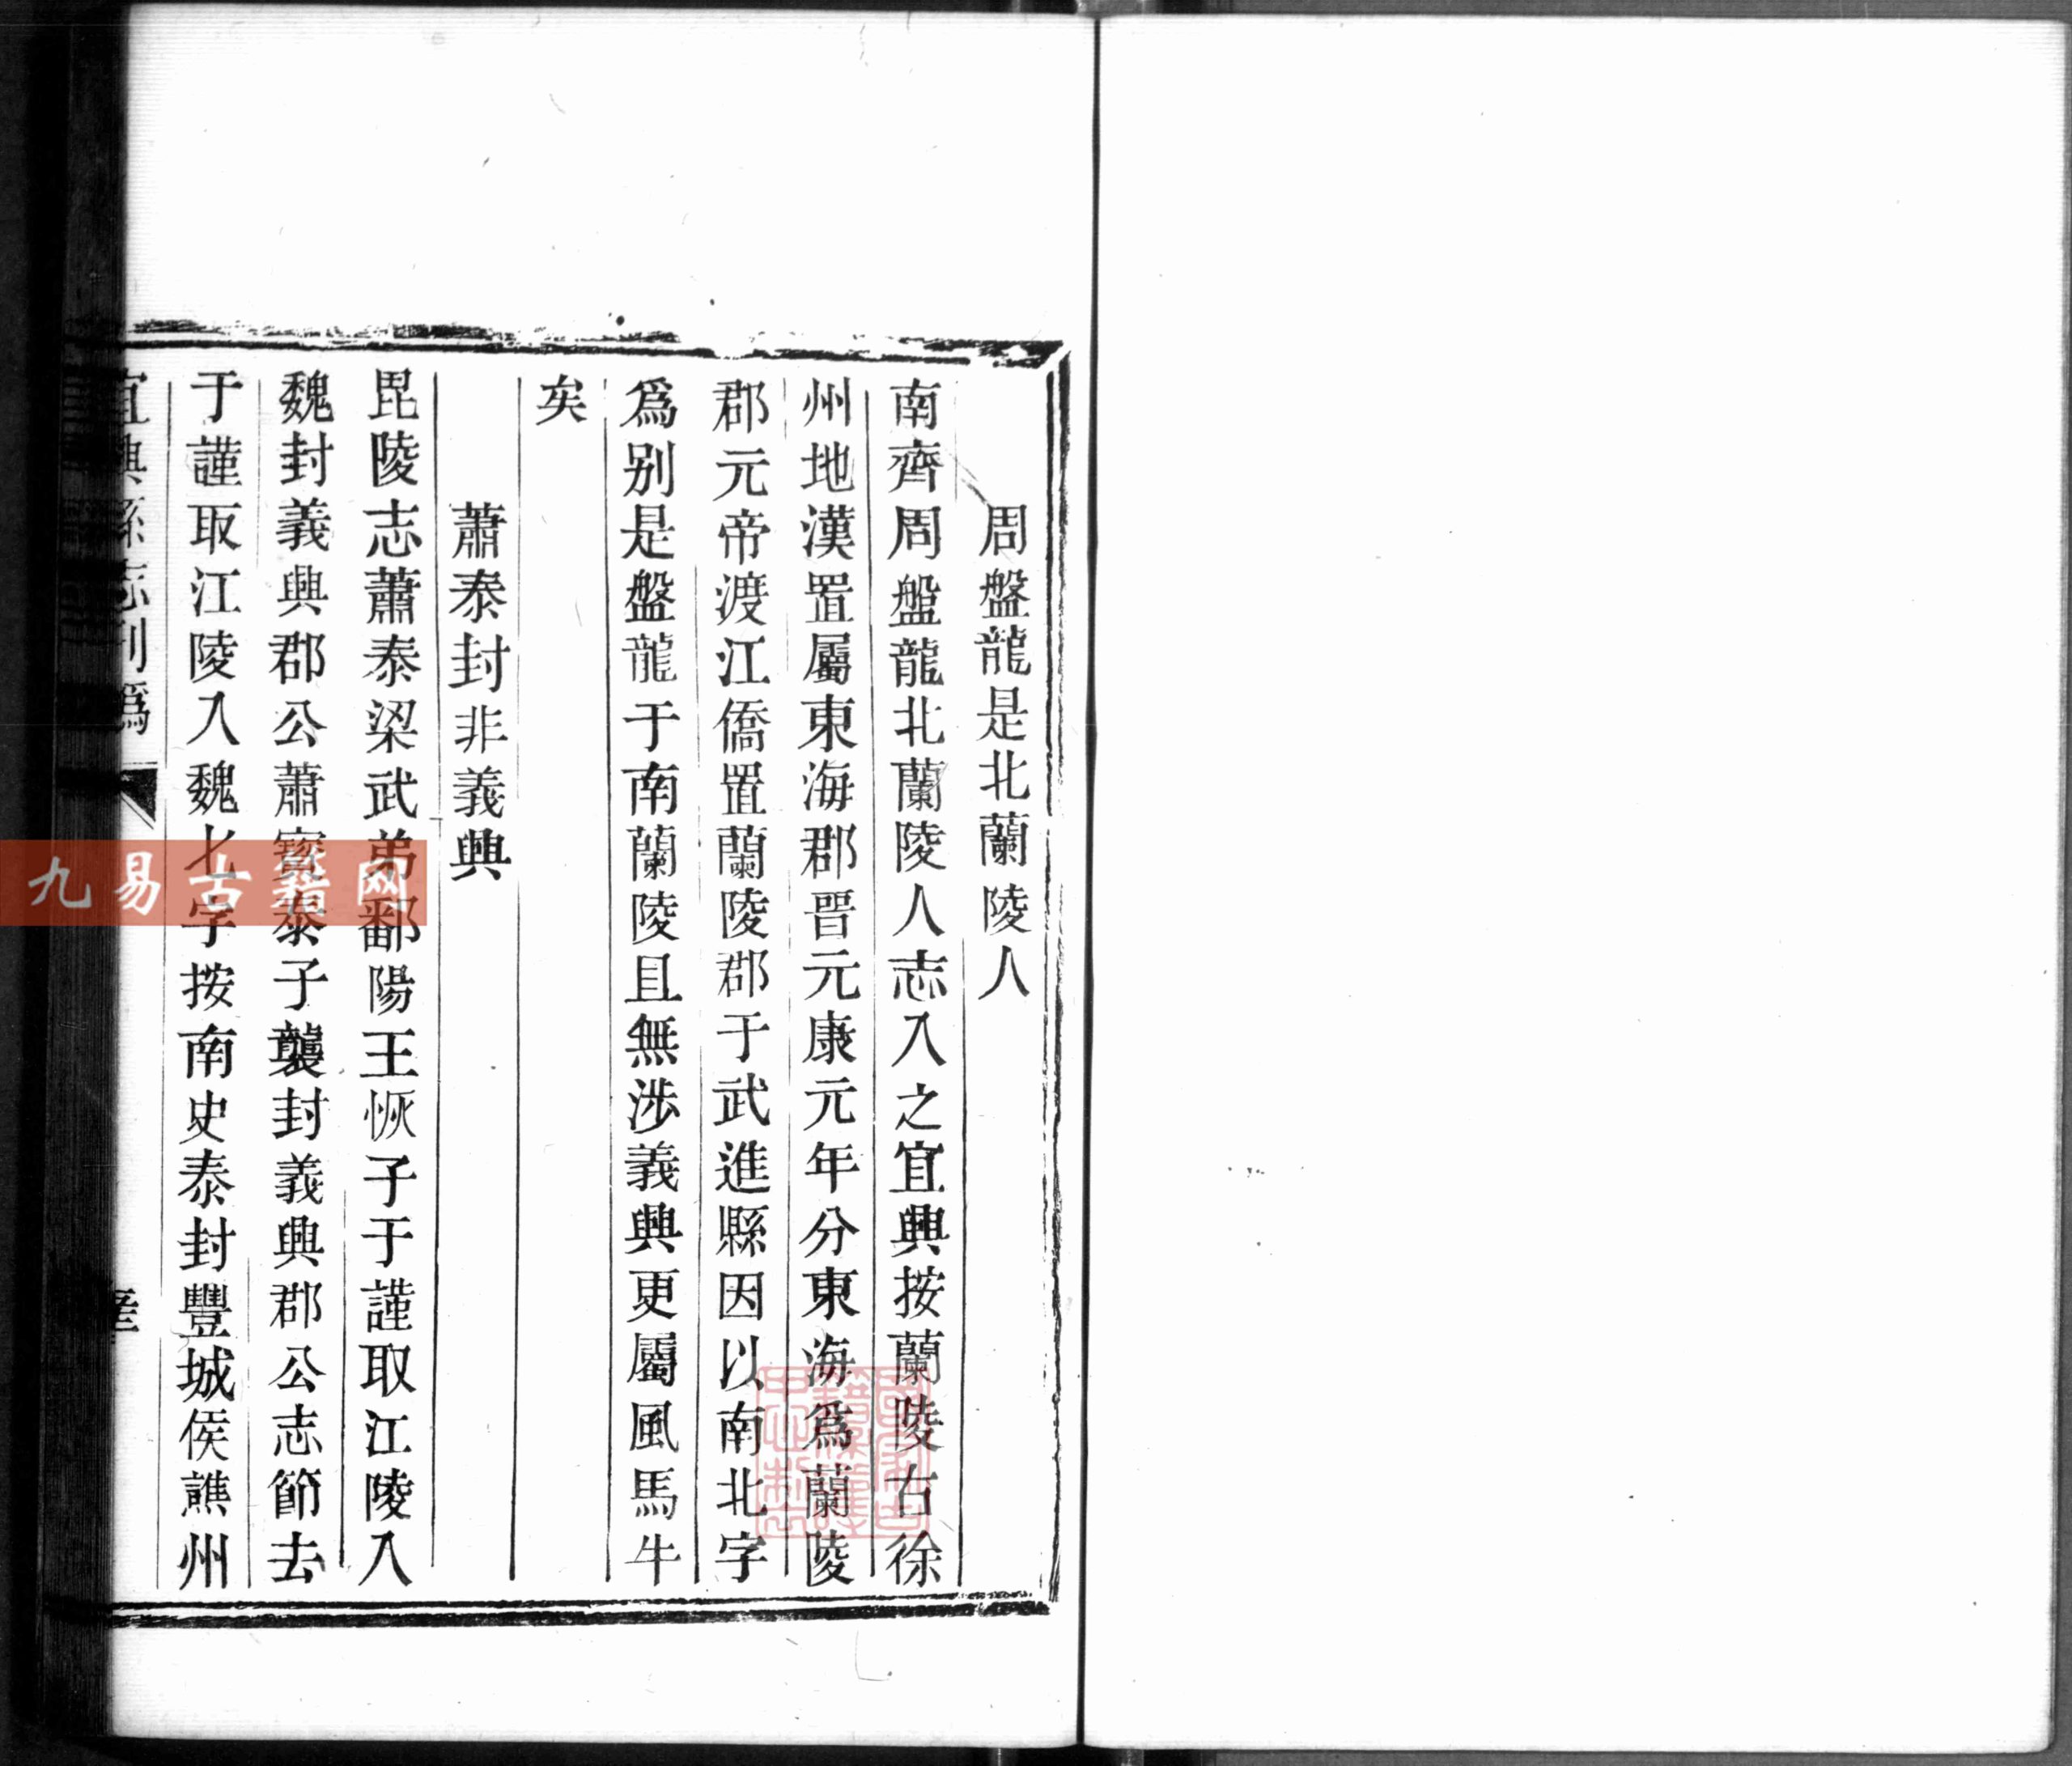 周盤龍是北蘭陵人
南齊周盤龍北蘭陵人志入之宜興按蘭陵古徐
州地漢置屬東海郡晋元康元年分東海爲蘭陵
郡元帝渡江僑置蘭陵郡于武進縣因以南北字
爲别是盤龍于南蘭陵且無涉義興更屬風馬牛
矣
蕭泰封非義興
毘陵志蕭泰梁武弟鄱陽王恢子于謹取江陵入
魏封義興郡公蕭寶泰子襲封義興郡公志節去
于謹取江陵入魏七字按南史泰封豐城侯譙州
宜興縣志刋譌
九易古籍网